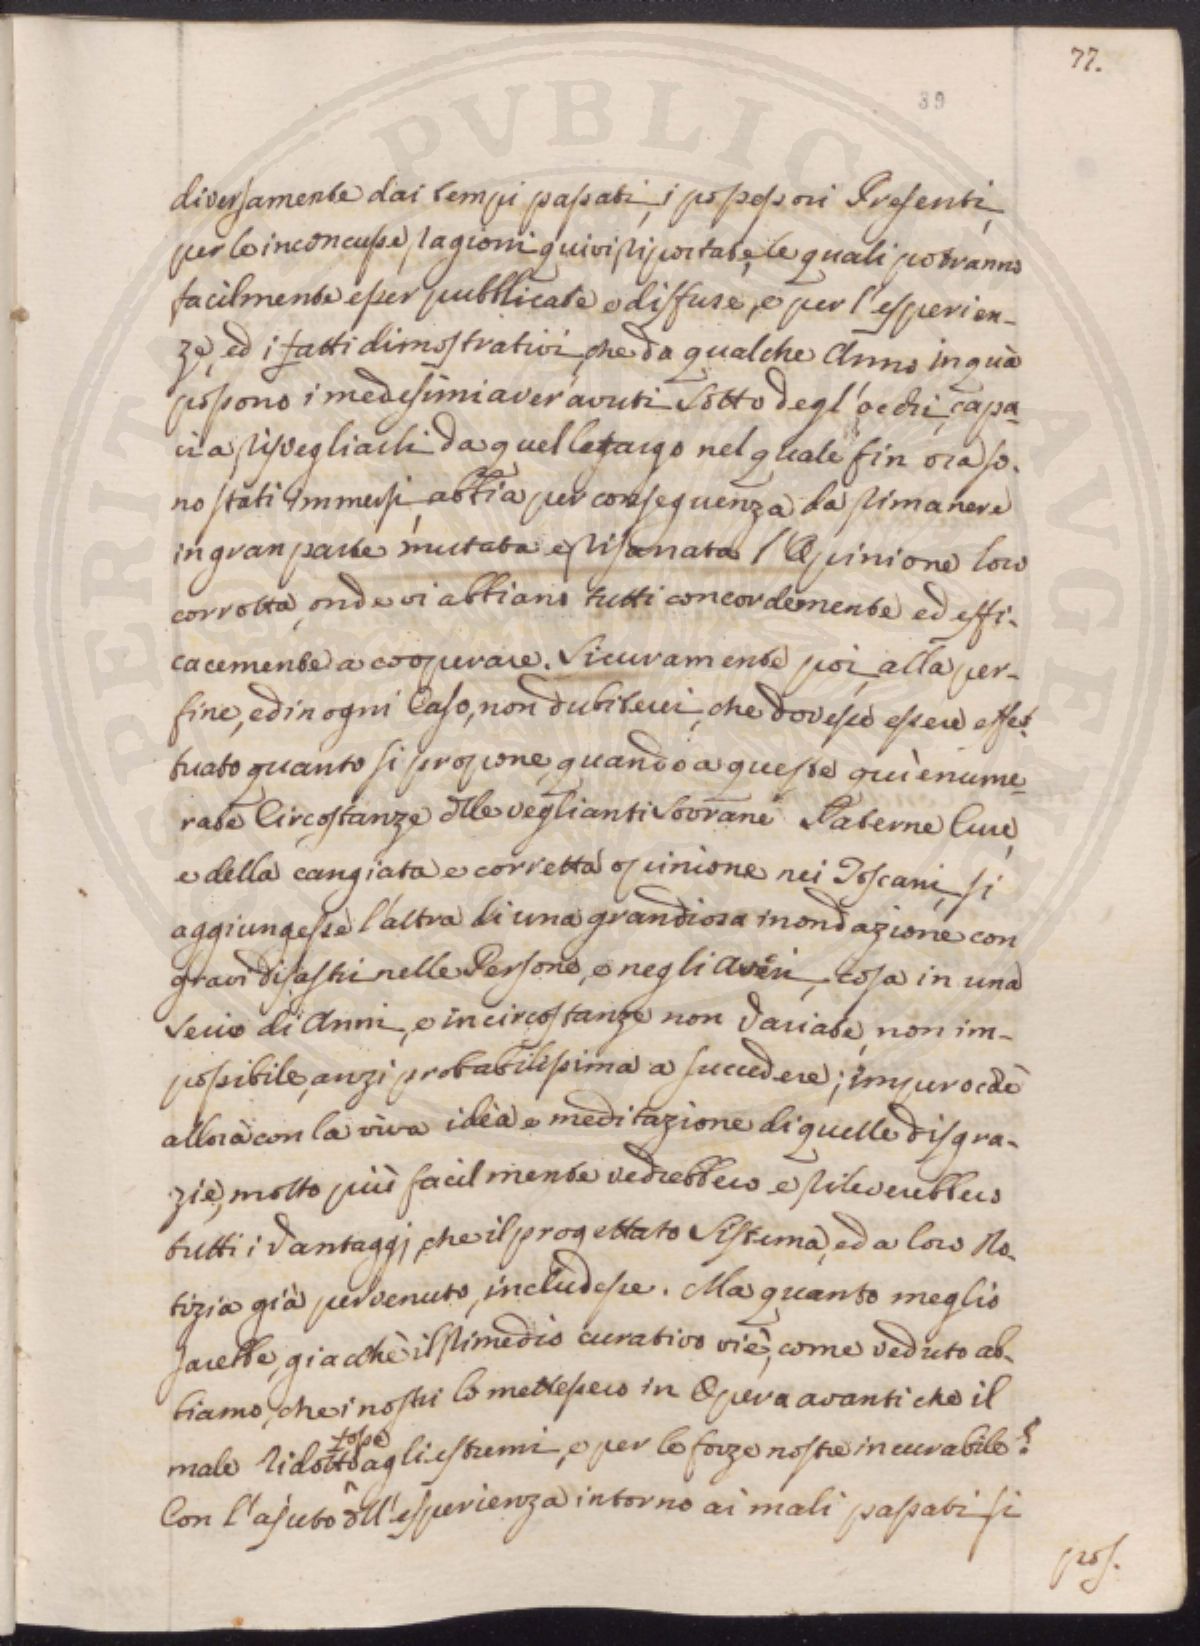 77.
39
diversamente dai tempi passati, i possessori Presenti,
per le inconcusse ragioni quivi riportate, le quali potranno
facilmente esser pubblicate e diffuse, e per l'esperien-
ze, ed i fatti dimostrativi, che da qualche Anno in quà
possono i medesimi aver avuti sotto degl'occhi, capa-
ci a risvegliarli da quel letargo nel quale fin ora so-
no stati immersi, abbia per conseguenza da rimanere
in gran parte mutata e risanata l'Opinione loro
corrotta, onde vi abbiano tutti concordemente ed effi-
cacemente a cooperare. Sicuramente poi, alla per-
fine, ed in ogni Caso, non dubiterei, che dovesse essere effet-
tuato quanto si propone, quando a queste quì enume-
rate Circostanze dlle veglianti Sovrane Paterne Cure,
e della cangiata e corretta opinione nei Toscani, si
aggiungesse l'altra di una grandiosa inondazione con
gravi disastri nelle Persone, e negli Averi, cosa in una
Serie di Anni, e in circostanze non variate, non im-
possibile, anzi probabilissima a succedere; imperocchè
allora con la viva idea e meditazione di quelle disgra-
zie, molto più facilmente vedrebbero e rileverebbero
tutti i vantaggj, che il progettato Sistema, ed a loro No-
tizia già pervenuto, includesse. Ma quanto meglio
sarebbe, giacchè il rimedio curativo vi è, come veduto ab-
biamo, che i nostri lo mettessero in Opera avanti che il
male ridotto fosse agli estremi, e per le forze nostre incurabile?
Con l'ajuto dll'esperienza intorno ai mali passati si
pos-